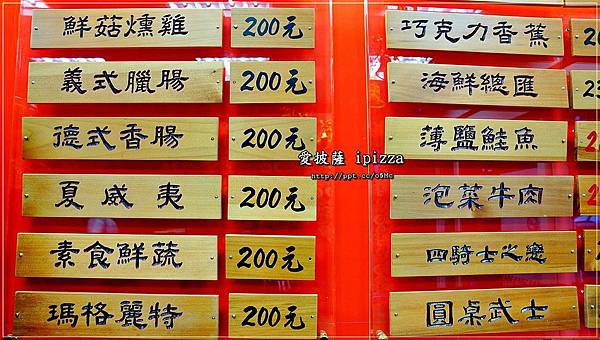 鮮菇燻雞 200元
義式臘腸 200元
德式香腸 200元
夏威夷 200元
素食鮮蔬 200元
瑪格麗特 200元
巧克力香蕉
海鮮總匯
薄鹽鮭魚
泡菜牛肉
四騎士之戀
圓桌武士
愛披薩 ipizza